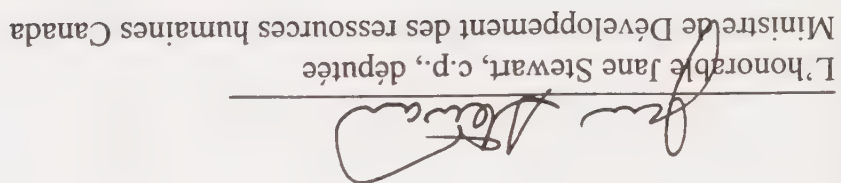 Jane Stewart
L'honorable Jane Stewart, c.p., députée
Ministre de Développement des ressources humaines Canada